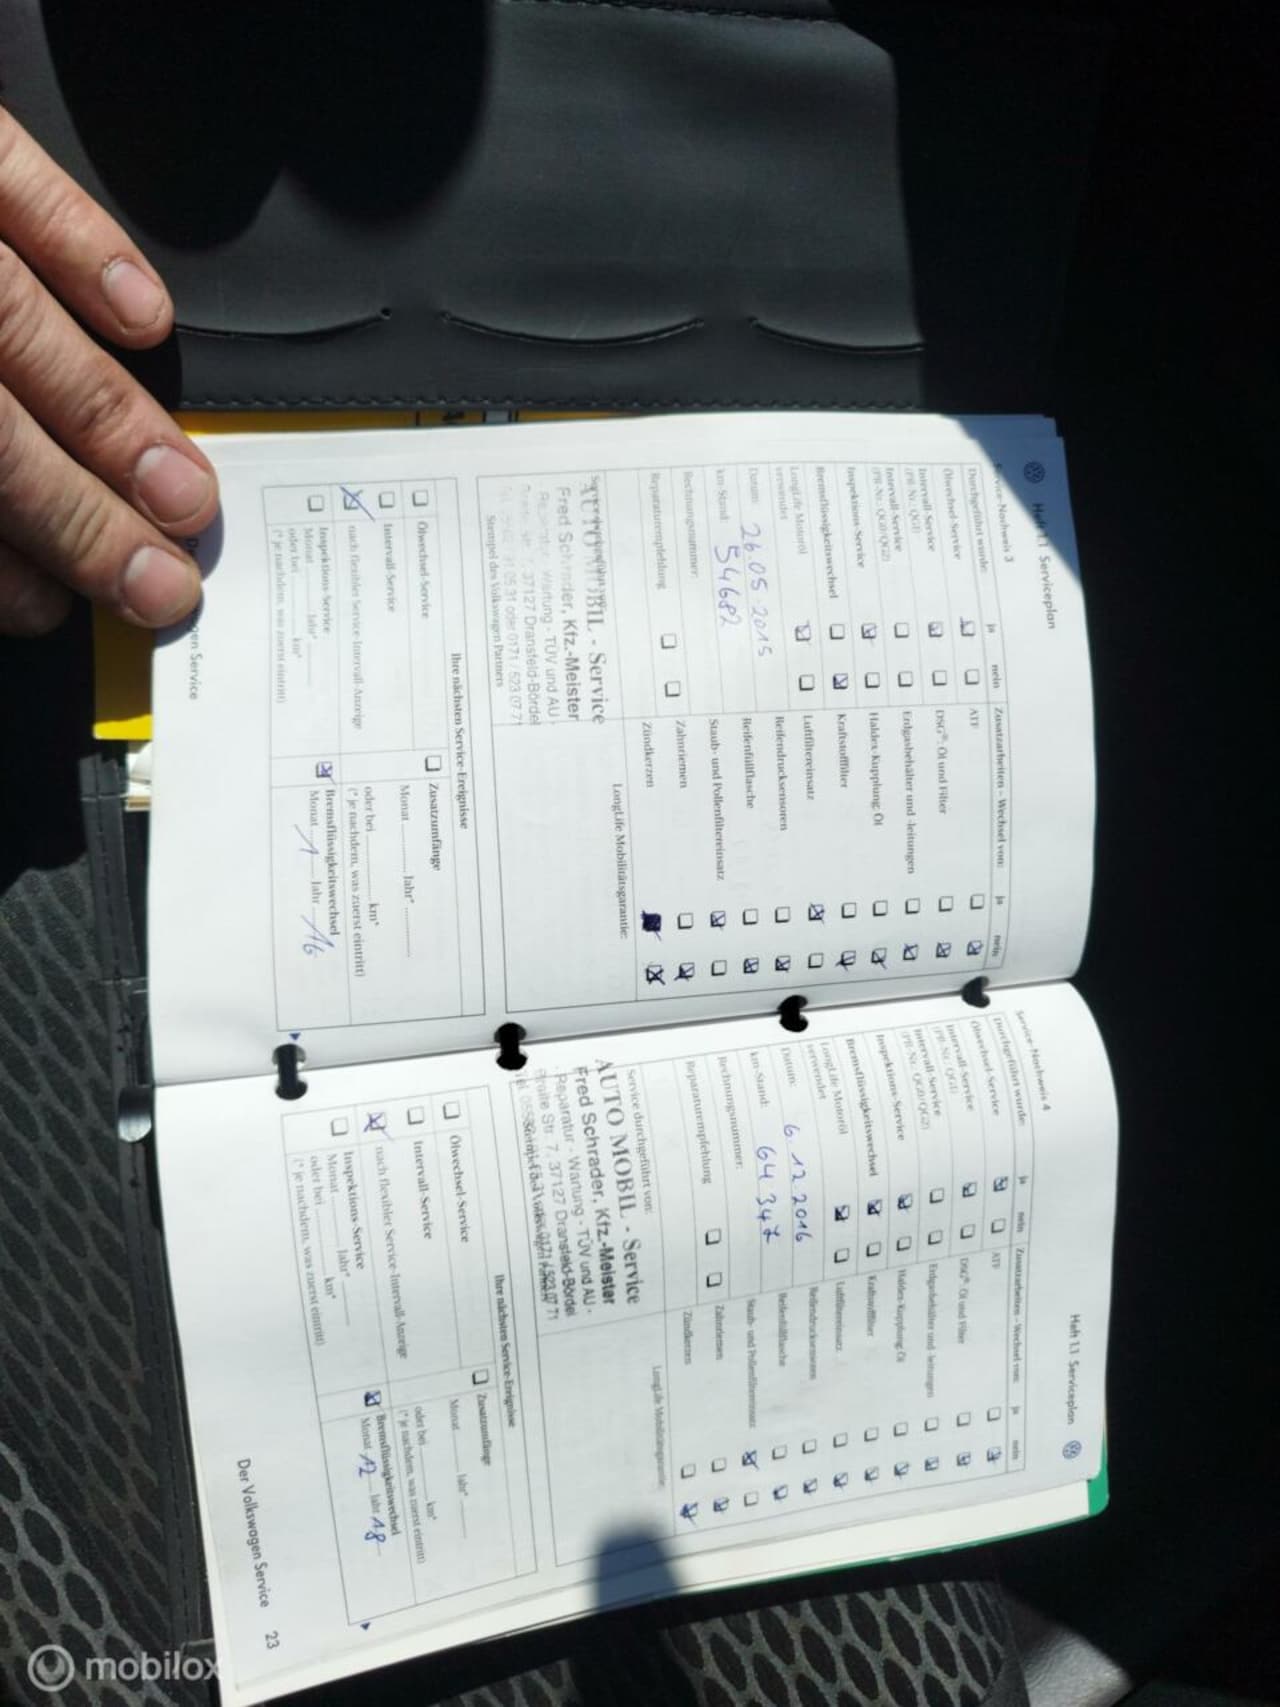 Heft 1.1 Serviceplan
Service-Nachweis 3
Durchgeführt wurde: ja nein
Ölwechsel-Service
Intervall-Service
(PR-Nr. QG1)
Intervall-Service
(PR-Nr. QG0/QG2)
Inspektions-Service
Bremsflüssigkeitswechsel
LongLife Motoröl
verwendet
Datum: 26.05 2015
km-Stand: 54682
Rechnungsnummer:
Reparaturempfehlung
Zusatzarbeiten – Wechsel von: ja nein
ATF
DSG®: Öl und Filter
Erdgasbehälter und -leitungen
Haldex-Kupplung: Öl
Kraftstofffilter
Luftfiltereinsatz
Reifendrucksensoren
Reifenfüllflasche
Staub- und Pollenfiltereinsatz
Zahnriemen
Zündkerzen
AUTO MOBIL - Service
Fred Schrader, Kfz.-Meister
Reparatur - Wartung - TÜV und AU -
7, 37127 Dransfeld-Bördel
0171 / 523 07 71
Stempel des Volkswagen Partners
LongLife Mobilitätsgarantie:
Ihre nächsten Service-Ereignisse
Ölwechsel-Service
Intervall-Service
nach flexibler Service-Intervall-Anzeige
Inspektions-Service
Monat Jahr*
oder bei km*
(* je nachdem, was zuerst eintritt)
Zusatzumfänge
Monat Jahr*
oder bei km*
(* je nachdem, was zuerst eintritt)
Bremsflüssigkeitswechsel
Monat 1 Jahr 16
gen Service
Heft 1.1 Serviceplan
Service-Nachweis 4
Durchgeführt wurde: ja nein
Ölwechsel-Service
Intervall-Service
(PR-Nr. QG1)
Intervall-Service
(PR-Nr. QG0/QG2)
Inspektions-Service
Bremsflüssigkeitswechsel
LongLife Motoröl
verwendet
Datum: 6.12.2016
km-Stand: 64 347
Rechnungsnummer:
Reparaturempfehlung
Zusatzarbeiten – Wechsel von: ja nein
ATF
DSG®: Öl und Filter
Erdgasbehälter und -leitungen
Haldex-Kupplung: Öl
Kraftstofffilter
Luftfiltereinsatz
Reifendrucksensoren
Reifenfüllflasche
Staub- und Pollenfiltereinsatz
Zahnriemen
Zündkerzen
Service durchgeführt von:
AUTO MOBIL - Service
Fred Schrader, Kfz.-Meister
Reparatur - Wartung - TÜV und AU -
Str. 7, 37127 Dransfeld-Bördel
0171 / 523 07 71
LongLife Mobilitätsgarantie:
Ihre nächsten Service-Ereignisse
Ölwechsel-Service
Intervall-Service
nach flexibler Service-Intervall-Anzeige
Inspektions-Service
Monat Jahr*
oder bei km*
(* je nachdem, was zuerst eintritt)
Zusatzumfänge
Monat Jahr*
oder bei km*
(* je nachdem, was zuerst eintritt)
Bremsflüssigkeitswechsel
Monat 12 Jahr 18
Der Volkswagen Service 23
mobilox